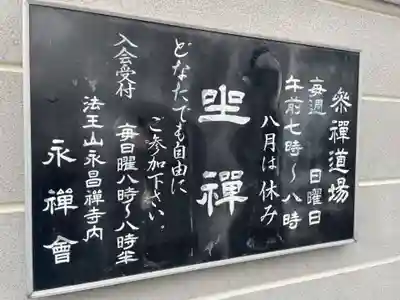 參禪道場
毎週 日曜日
午前七時〜八時
八月は休み
坐禪
どなたでも自由に
ご参加下さい。
入会受付 毎日曜八時〜八時半
法王山永昌禅寺内
永禪會